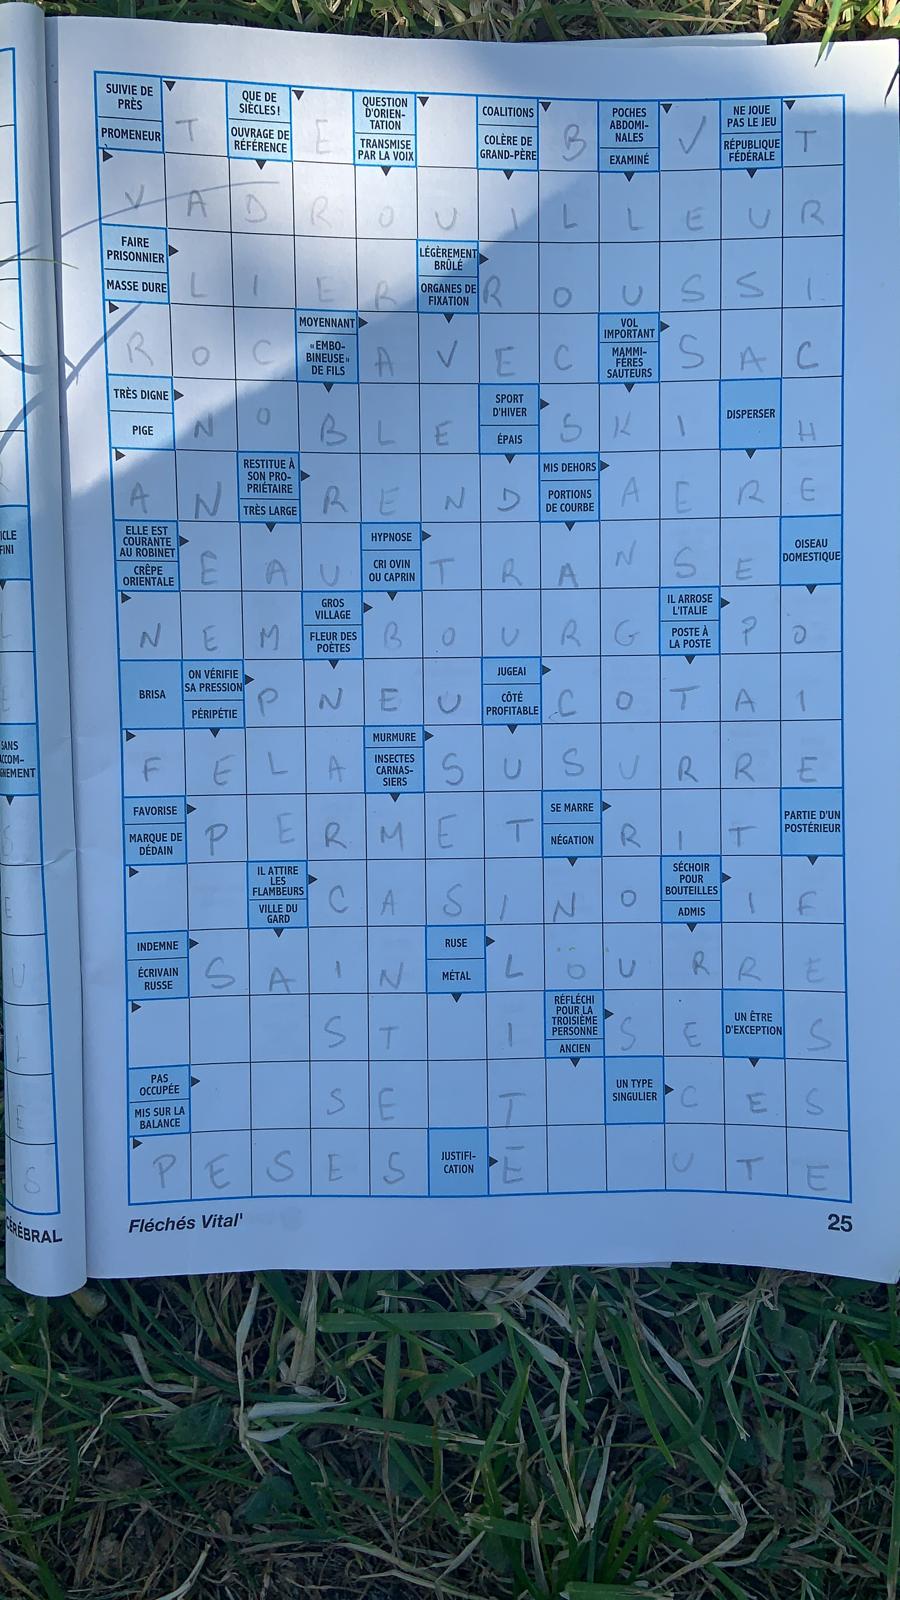 SUIVIE DE PRÈS
PROMENEUR
T
QUE DE SIÈCLES !
OUVRAGE DE RÉFÉRENCE
E
QUESTION D'ORIEN-TATION
TRANSMISE PAR LA VOIX
COALITIONS
COLÈRE DE GRAND-PÈRE
B
POCHES ABDOMI-NALES
EXAMINÉ
V
NE JOUE PAS LE JEU
RÉPUBLIQUE FÉDÉRALE
T
V A D R O U I L L E U R
FAIRE PRISONNIER
MASSE DURE
L I E R
LÉGÈREMENT BRÛLÉ
ORGANES DE FIXATION
R O U S S I
R O C
MOYENNANT
«EMBO-BINEUSE» DE FILS
A V E C
VOL IMPORTANT
MAMMI-FÈRES SAUTEURS
S A C
TRÈS DIGNE
PIGE
N O B L E
SPORT D'HIVER
ÉPAIS
S K I
DISPERSER
H
A N
RESTITUE À SON PRO-PRIÉTAIRE
TRÈS LARGE
R E N D
MIS DEHORS
PORTIONS DE COURBE
A E R E
ELLE EST COURANTE AU ROBINET
CRÊPE ORIENTALE
E A U
HYPNOSE
CRI OVIN OU CAPRIN
T R A N S E
OISEAU DOMESTIQUE
N E M
GROS VILLAGE
FLEUR DES POÈTES
B O U R G
IL ARROSE L'ITALIE
POSTE À LA POSTE
P O
BRISA
ON VÉRIFIE SA PRESSION
PÉRIPÉTIE
P N E U
JUGEAI
CÔTÉ PROFITABLE
C O T A I
F E L A
MURMURE
INSECTES CARNAS-SIERS
S U S U R R E
FAVORISE
MARQUE DE DÉDAIN
P E R M E T
SE MARRE
NÉGATION
R I T
PARTIE D'UN POSTÉRIEUR
IL ATTIRE LES FLAMBEURS
VILLE DU GARD
C A S I N O
SÉCHOIR POUR BOUTEILLES
ADMIS
I F
INDEMNE
ÉCRIVAIN RUSSE
S A I N
RUSE
MÉTAL
L O U R R E
S T I
RÉFLÉCHI POUR LA TROISIÈME PERSONNE
ANCIEN
S E
UN ÊTRE D'EXCEPTION
S
PAS OCCUPÉE
MIS SUR LA BALANCE
S E T
UN TYPE SINGULIER
C E S
P E S E S
JUSTIFI-CATION
E U T E
Fléchés Vital'
25
ICLE
FINI
SANS
ACCOM-
GNEMENT
S
E
U
L
E
S
CÉRÉBRAL